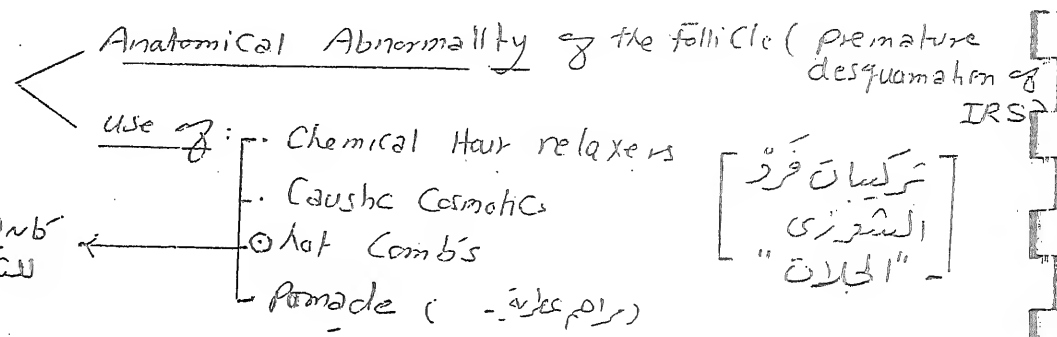 Anatomical Abnormality of the follicle ( premature
desquamation of
IRS)
use of :
. Chemical Hair relaxers
. Caustic Cosmotics
hot Combs
Pomade ( مراهم عطرية )
[ تركيبات فَرْدْ
الشعر زى
"الجلات" ]